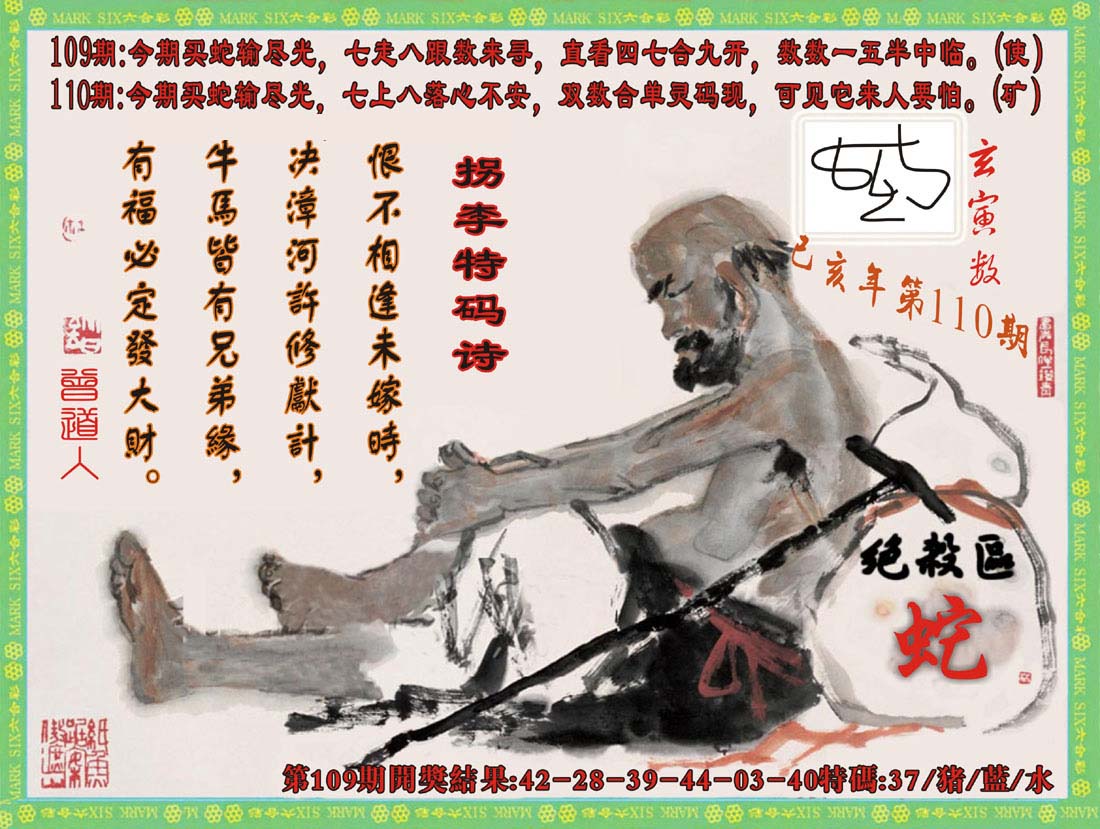 MARK SIX六合彩
109期:今期买蛇输尽光，七走八跟数来寻，直看四七合九开，数数一五半中临。(使)
110期:今期买蛇输尽光，七上八落心不安，双数合单灵码现，可见它来人要怕。(矿)
玄寅数
己亥年第110期
拐李特码诗
恨不相逢未嫁時，
决漳河許修獻計，
牛馬皆有兄弟緣，
有福必定發大財。
曾道人
绝殺區
蛇
第109期開獎結果:42-28-39-44-03-40特碼:37/猪/藍/水